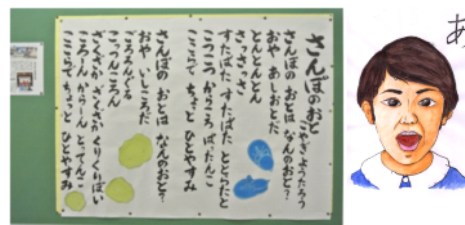 さんぽのおと
こやぎようたろう
さんぽの おとは なんのおと?
おや あしおとだ
とんとんとんとん
さっさっさっ
すたぱた すたぱた ととったと
こつこつ からころ ぱったんこ
ここらで ちょっと ひとやすみ
さんぽの おとは なんのおと?
おや いしころだ
ごろろんごろ
こっつんころん
ざくざか ざくざか くりくりぱい
ころーん からーん とってんこ
ここらで ちょっと ひとやすみ
あ